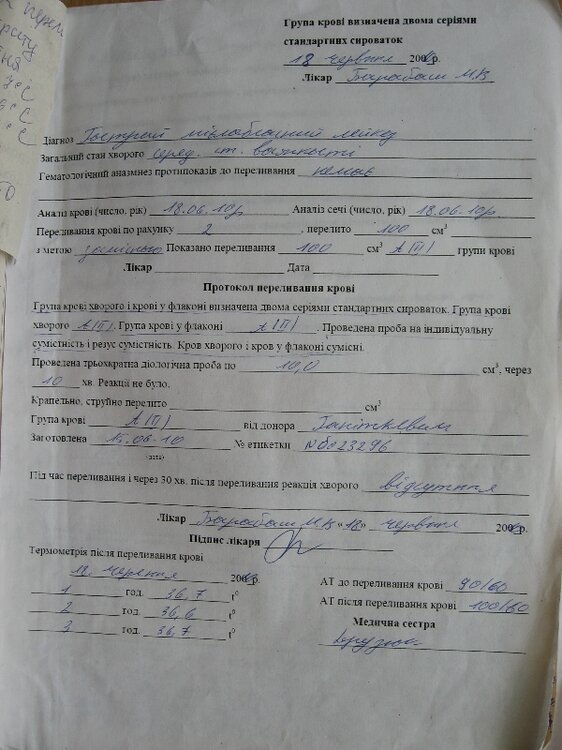 Група крові визначена двома серіями
стандартних сироваток
18 червня 2000р.
Лікар Барабаш М.В
Діагноз Гострий мієлобласний лейкоз
Загальний стан хворого серед. ст. важкості
Гематологічний анамнез протипоказів до переливання немає
Аналіз крові (число, рік) 18.06.10р Аналіз сечі (число, рік) 18.06.10р
Переливання крові по рахунку 2, перелито 100 см³
з метою Показано переливання 100 см³ А(ІІ) групи крові
Лікар Дата
Протокол переливання крові
Група крові хворого і крові у флаконі визначена двома серіями стандартних сироваток. Група крові
хворого А(ІІ). Група крові у флаконі А(ІІ). Проведена проба на індивідуальну
сумістність і резус сумістність. Кров хворого і кров у флаконі сумісні.
Проведена трьохкратна діологічна проба по 10,0 см³, через
10 хв. Реакції не було.
Крапельно, струйно перелито см³
Група крові А(ІІ) від донора
Заготовлена 15.06-10 № етикетки №623296
(дата)
Під час переливання і через 30 хв. після переливання реакція хворого відсутня
Лікар Барабаш М.В «18» червня 200 р.
Підпис лікаря
Термометрія після переливання крові
18. червня 200 р.
1 год. 36,7 t°
2 год. 36,6 t°
3 год. 36,7 t°
АТ до переливання крові 90/60
АТ після переливання крові 100/60
Медична сестра